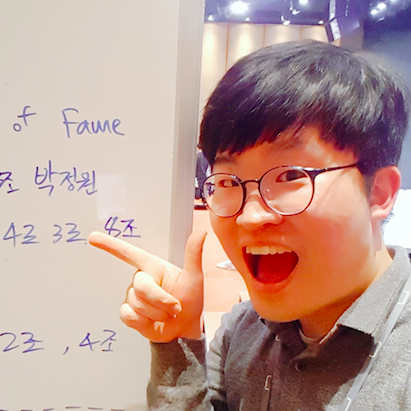 of Fame
조 박정원
4조 3조 8조
2조, 4조